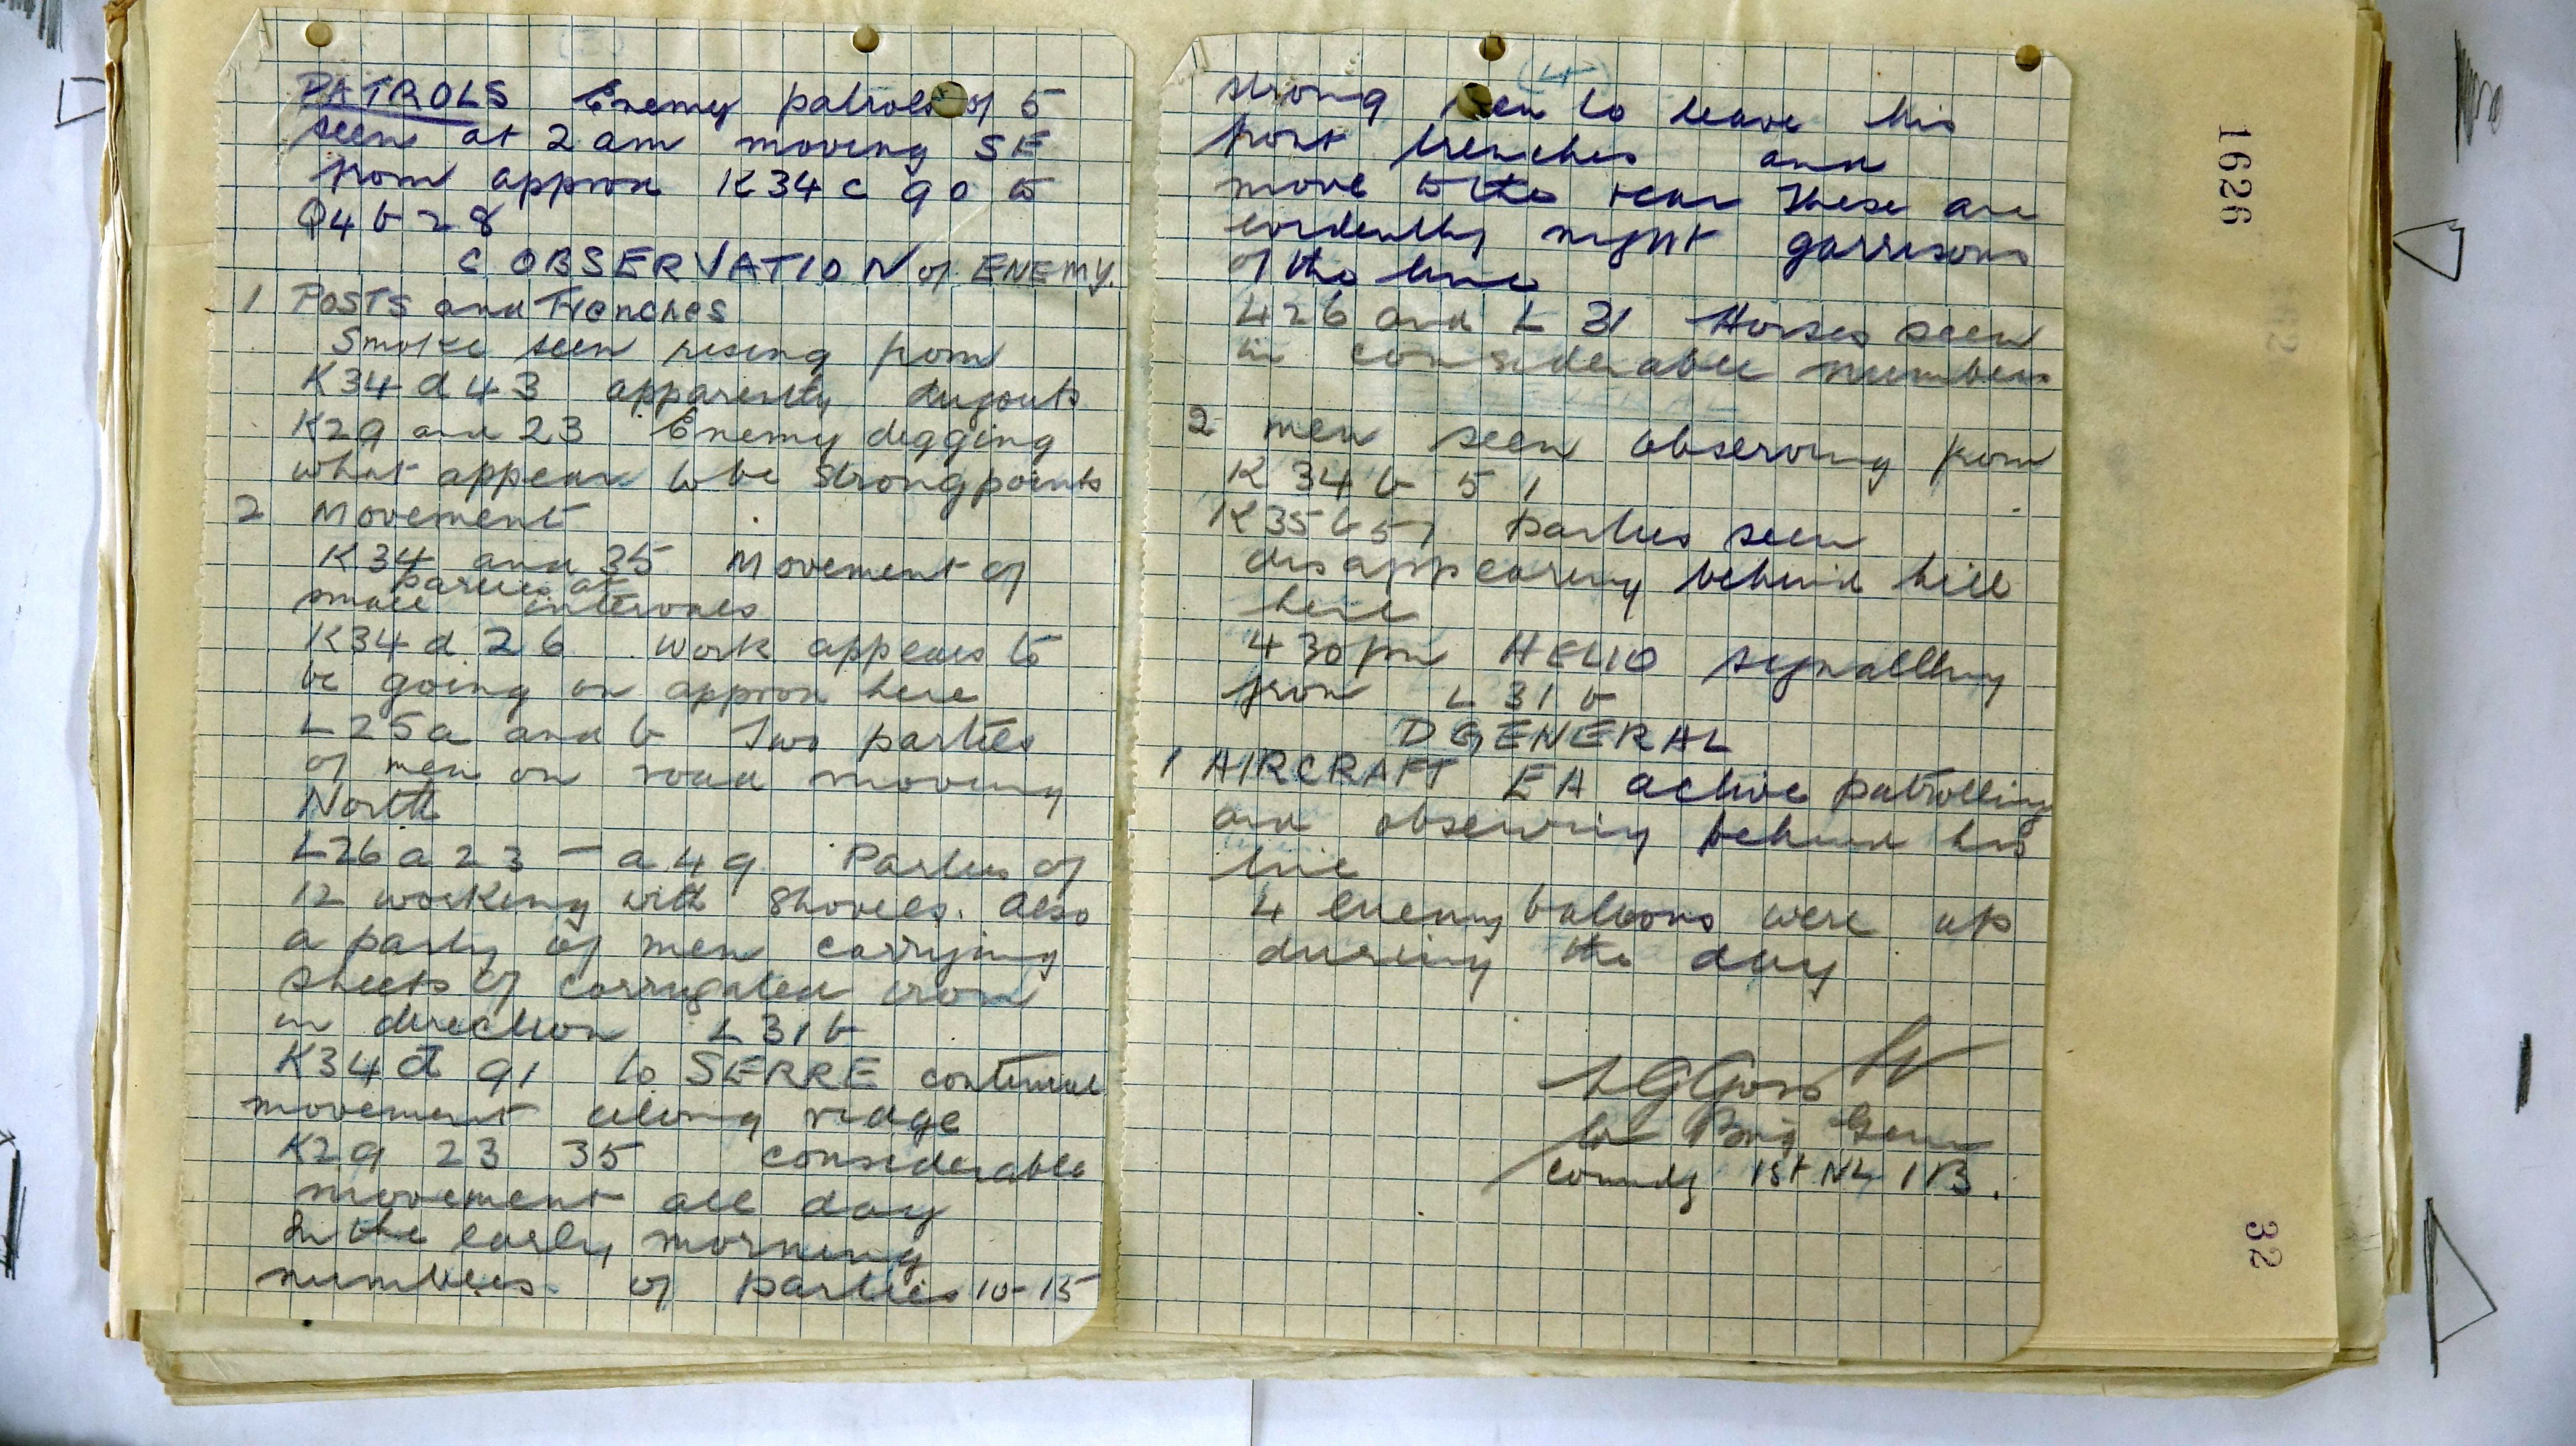 PATROLS Enemy patrols of 5
seen at 2 am moving SE
from approx K34 c 90 to
Q4 b 28
C OBSERVATION of ENEMY.
1 POSTS and Trenches
Smoke seen rising from
K34 d 43 apparently dugouts
K29 and 23 Enemy digging
what appear to be Strongpoints
2 Movement
K34 and 35 Movement of
small parties at intervals
K34 d 26 work appears to
be going on approx here
L25a and b Two parties
of men on road moving
North
L26 a 23 - a 49 Parties of
12 working with shovels. Also
a party of men carrying
sheets of corrugated iron
in direction L31b
K34 d 91 to SERRE continual
movement along ridge
K29 23 35 considerable
movement all day
In the early morning
numbers of parties 10-15
(4)
strong seen to leave his
front trenches and
move to the rear These are
evidently night garrisons
of the line
L26 and L 31 Horses seen
in considerable numbers
2 men seen observing from
K 34 b 5 1
K35 b 51 parties seen
disappearing behind hill
here
4 30 pm HELIO signalling
from L 31 b
D GENERAL
1 AIRCRAFT EA active patrolling
and observing behind his
line
4 Enemy baloons were up
during the day
for Brig Genl
Comdg 1st NZ I B.
1626
32